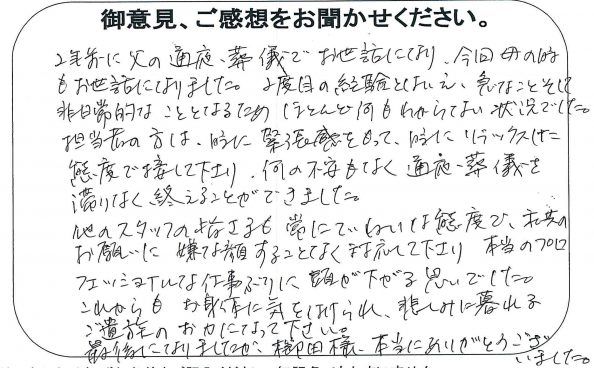 御意見、ご感想をお聞かせください。
2年前に父の通夜・葬儀でお世話になり、今回母の時
もお世話になりました。2度目の経験とはいえ、急なことそして
非日常的なこととなるため ほとんど何もわからない状況でした。
担当者の方は、時に緊張感をもって、時にリラックスした
態度で接して下さり、何の不安もなく通夜・葬儀を
滞りなく終えることができました。
他のスタッフの皆さまも常にていねいな態度で、私共の
お願いに嫌な顔することなく対応して下さり 本当のプロ
フェッショナルな仕事ぶりに頭が下がる思いでした。
これからもお身体に気をつけられ、悲しみに暮れる
ご遺族の力になって下さい。
最後になりましたが、柳田様、本当にありがとうござ
いました。